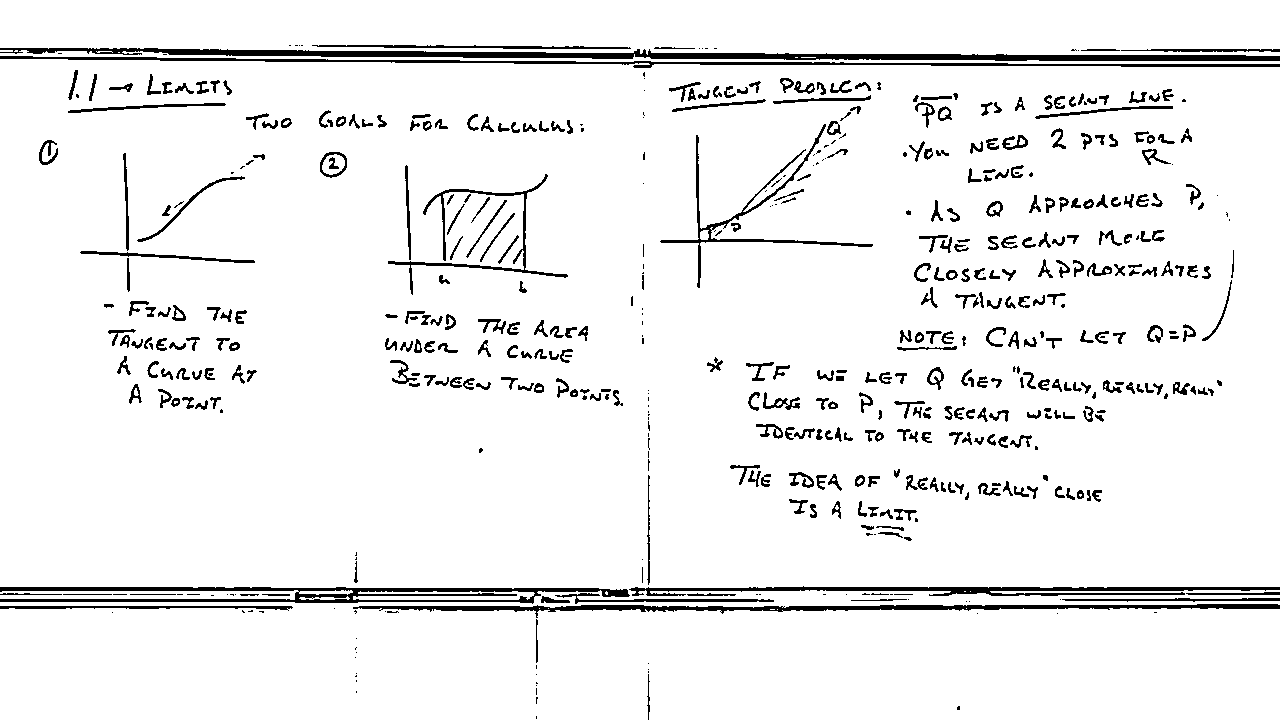 1.1 → LIMITS
TWO GOALS FOR CALCULUS:
①
②
a
b
- FIND THE
TANGENT TO
A CURVE AT
A POINT.
- FIND THE AREA
UNDER A CURVE
BETWEEN TWO POINTS.
TANGENT PROBLEM:
Q
P
"PQ" IS A SECANT LINE.
· YOU NEED 2 PTS FOR A
LINE.
· AS Q APPROACHES P,
THE SECANT MORE
CLOSELY APPROXIMATES
A TANGENT.
NOTE: CAN'T LET Q=P
* IF WE LET Q GET "REALLY, REALLY, REALLY"
CLOSE TO P, THE SECANT WILL BE
IDENTICAL TO THE TANGENT.
THE IDEA OF "REALLY, REALLY" CLOSE
IS A LIMIT.